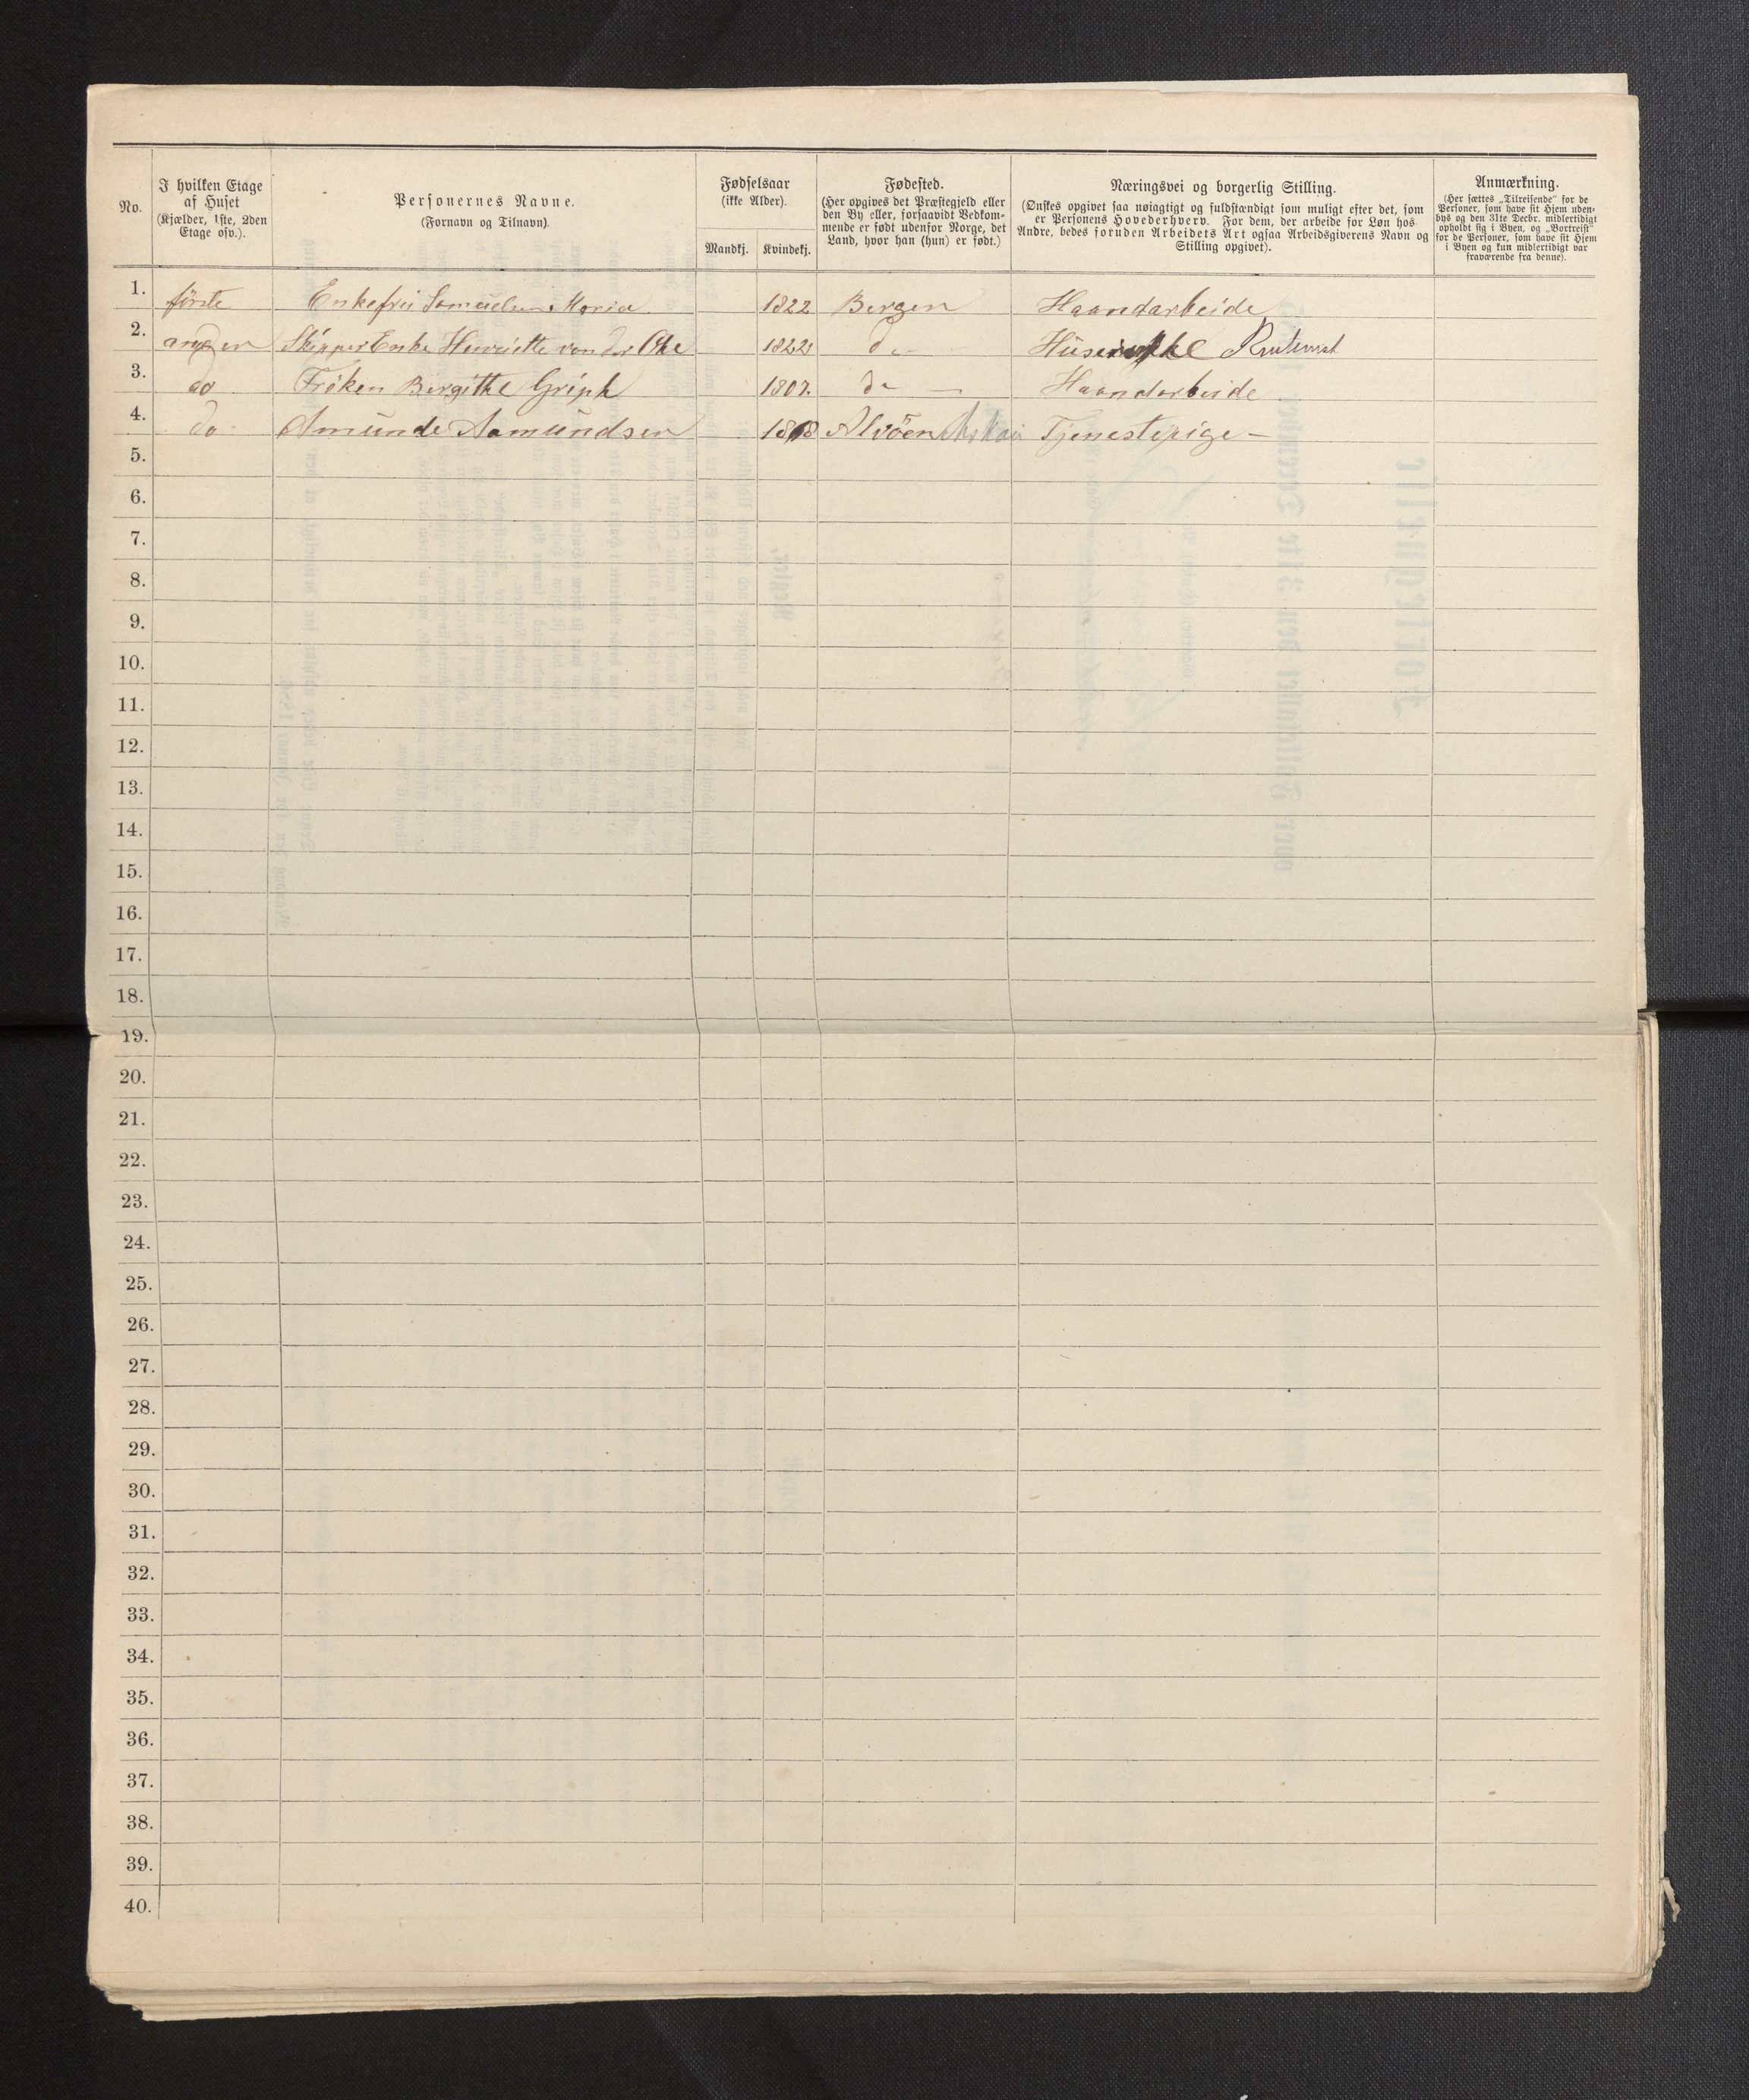 No.
I hvilken Etage
af Huset
(Kjælder, 1ste, 2den
Etage osv.).
Personernes Navne.
(Fornavn og Tilnavn).
Fødselsaar
(ikke Alder).
Mandkj.
Kvindekj.
Fødested.
(Her opgives det Præstegjeld eller
den By eller, forsaavidt Vedkom-
mende er født udenfor Norge, det
Land, hvor han (hun) er født.)
Næringsvei og borgerlig Stilling.
(Ønskes opgivet saa nøiagtigt og fuldstændigt som muligt efter det, som
er Personens Hovederhverv. For dem, der arbeide for Løn hos
Andre, bedes foruden Arbeidets Art ogsaa Arbeidsgiverens Navn og
Stilling opgivet).
Anmærkning.
(Her sættes „Tilreisende" for de
Personer, som have sit Hjem uden-
bys og den 31te Decbr. midlertidigt
opholdt sig i Byen, og „Bortreist"
for de Personer, som have sit Hjem
i Byen og kun midlertidigt var
fraværende fra denne).
1. første Enkefrü Samüelsen Maria 1822 Bergen Haandarbeide
2. anden Skipper Enke Henriette von der Ohe 1822 do Rentenist
3. do Frøken Birgithe Griph 1807. do Haandarbeide
4. do Amünde Aamündsen Alvöen Askøi Tjenestepige
5.
6.
7.
8.
9.
10.
11.
12.
13.
14.
15.
16.
17.
18.
19.
20.
21.
22.
23.
24.
25.
26.
27.
28.
29.
30.
31.
32.
33.
34.
35.
36.
37.
38.
39.
40.